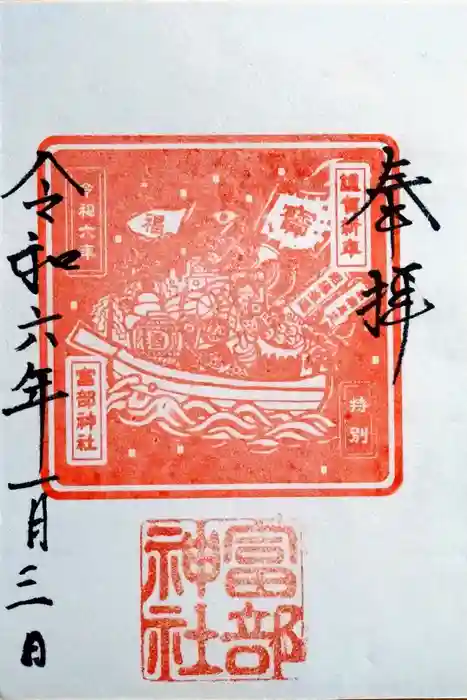 奉拝
謹賀新年
特別
福
令和六年
富部神社
富部神社
令和六年一月三日